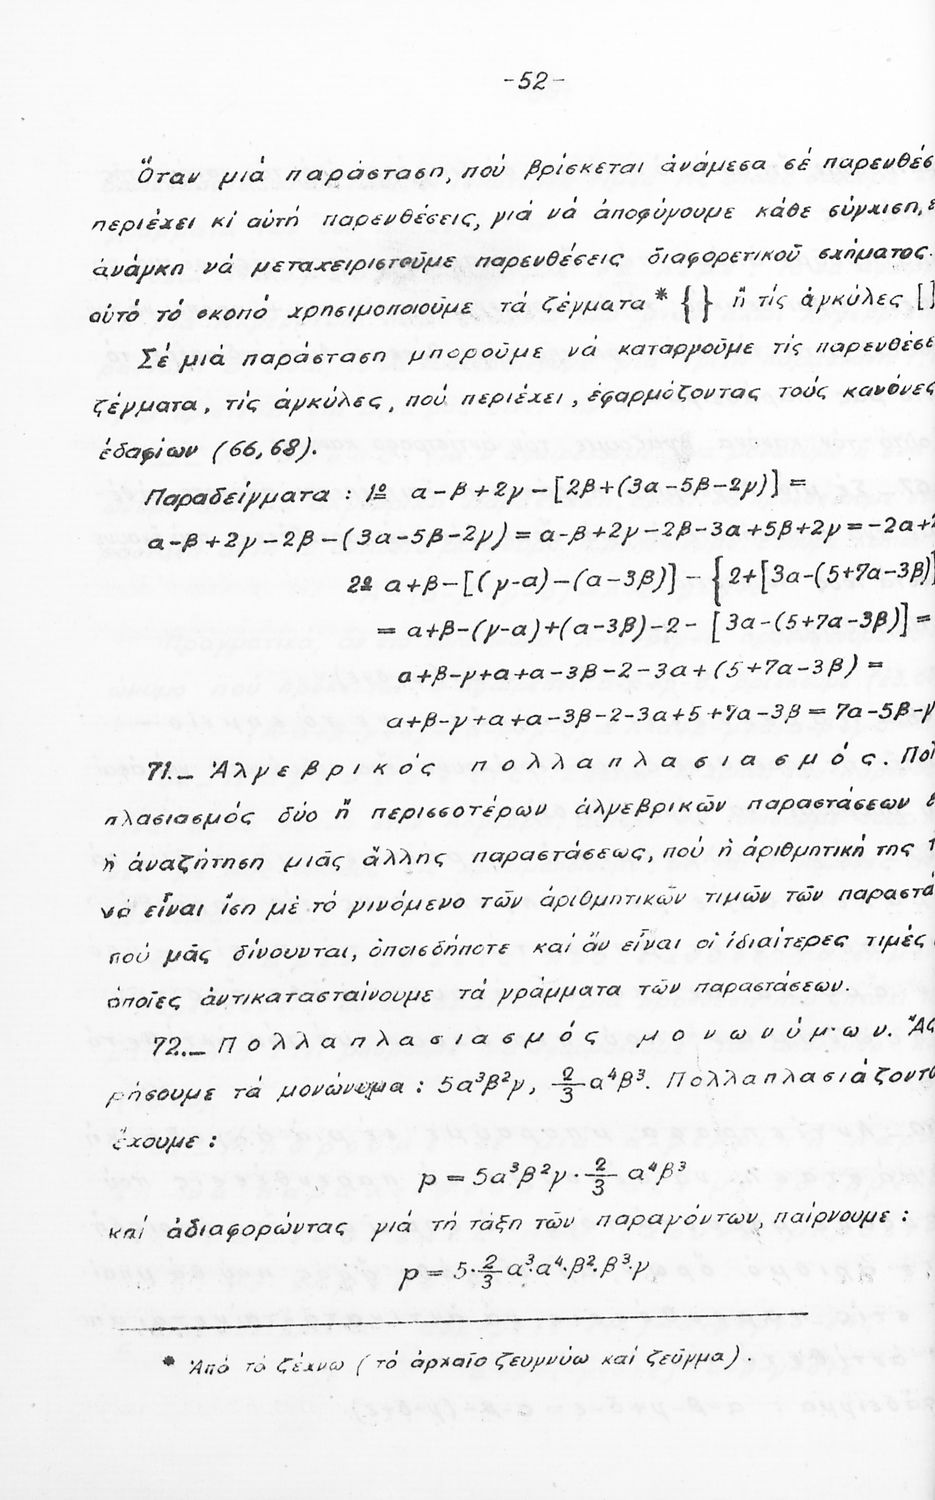 -52-
Ὅταν μιά παράσταση, πού βρίσκεται ἀνάμεσα σέ παρενθέσ
περιέχει κι αὐτή παρενθέσεις, γιά νά ἀποφύγουμε κάθε σύγχιση, ε
ἀνάγκη νά μεταχειριστοῦμε παρενθέσεις διαφορετικοῦ σχήματος.
αὐτό τό σκοπό χρησιμοποιοῦμε τά ζέγματα* { } ἤ τίς ἀγκύλες []
Σέ μιά παράσταση μποροῦμε νά καταργοῦμε τίς παρενθέσε
ζέγματα, τίς ἀγκύλες, πού περιέχει, ἐφαρμόζοντας τούς κανόνες
ἐδαφίων (66, 68).
Παραδείγματα : 1º α-β+2γ-[2β+(3α-5β-2γ)] =
α-β+2γ-2β-(3α-5β-2γ) = α-β+2γ-2β-3α+5β+2γ = -2α+2
2º α+β-[(γ-α)-(α-3β)] - {2+[3α-(5+7α-3β)]
= α+β-(γ-α)+(α-3β)-2- [3α-(5+7α-3β)] =
α+β-γ+α+α-3β-2-3α+(5+7α-3β) =
α+β-γ+α+α-3β-2-3α+5+7α-3β = 7α-5β-γ
71.- Ἀλγεβρικός πολλαπλασιασμός. Πολ
πλασιασμός δύο ἤ περισσοτέρων ἀλγεβρικῶν παραστάσεων ε
ἡ ἀναζήτηση μιᾶς ἄλλης παραστάσεως, πού ἡ ἀριθμητική της τ
νά εἶναι ἴση μὲ τό γινόμενο τῶν ἀριθμητικῶν τιμῶν τῶν παραστά
πού μᾶς δίνουνται, ὁποιεσδήποτε καί ἄν εἶναι οἱ ἰδιαίτερες τιμές
ὁποῖες ἀντικατασταίνουμε τά γράμματα τῶν παραστάσεων.
72.- Πολλαπλασιασμός μονωνύμων. Ἄς
ρήσουμε τά μονώνυμα : 5α³β²γ, 2/3 α⁴β³. Πολλαπλασιάζοντα
ἔχουμε :
p = 5α³β²γ · 2/3 α⁴β³
καί ἀδιαφορώντας γιά τή τάξη τῶν παραγόντων, παίρνουμε :
p = 5·2/3 α³·α⁴·β²·β³·γ
* Ἀπό τό ζέχνω (τό ἀρχαῖο ζευγνύω καί ζεῦγμα).